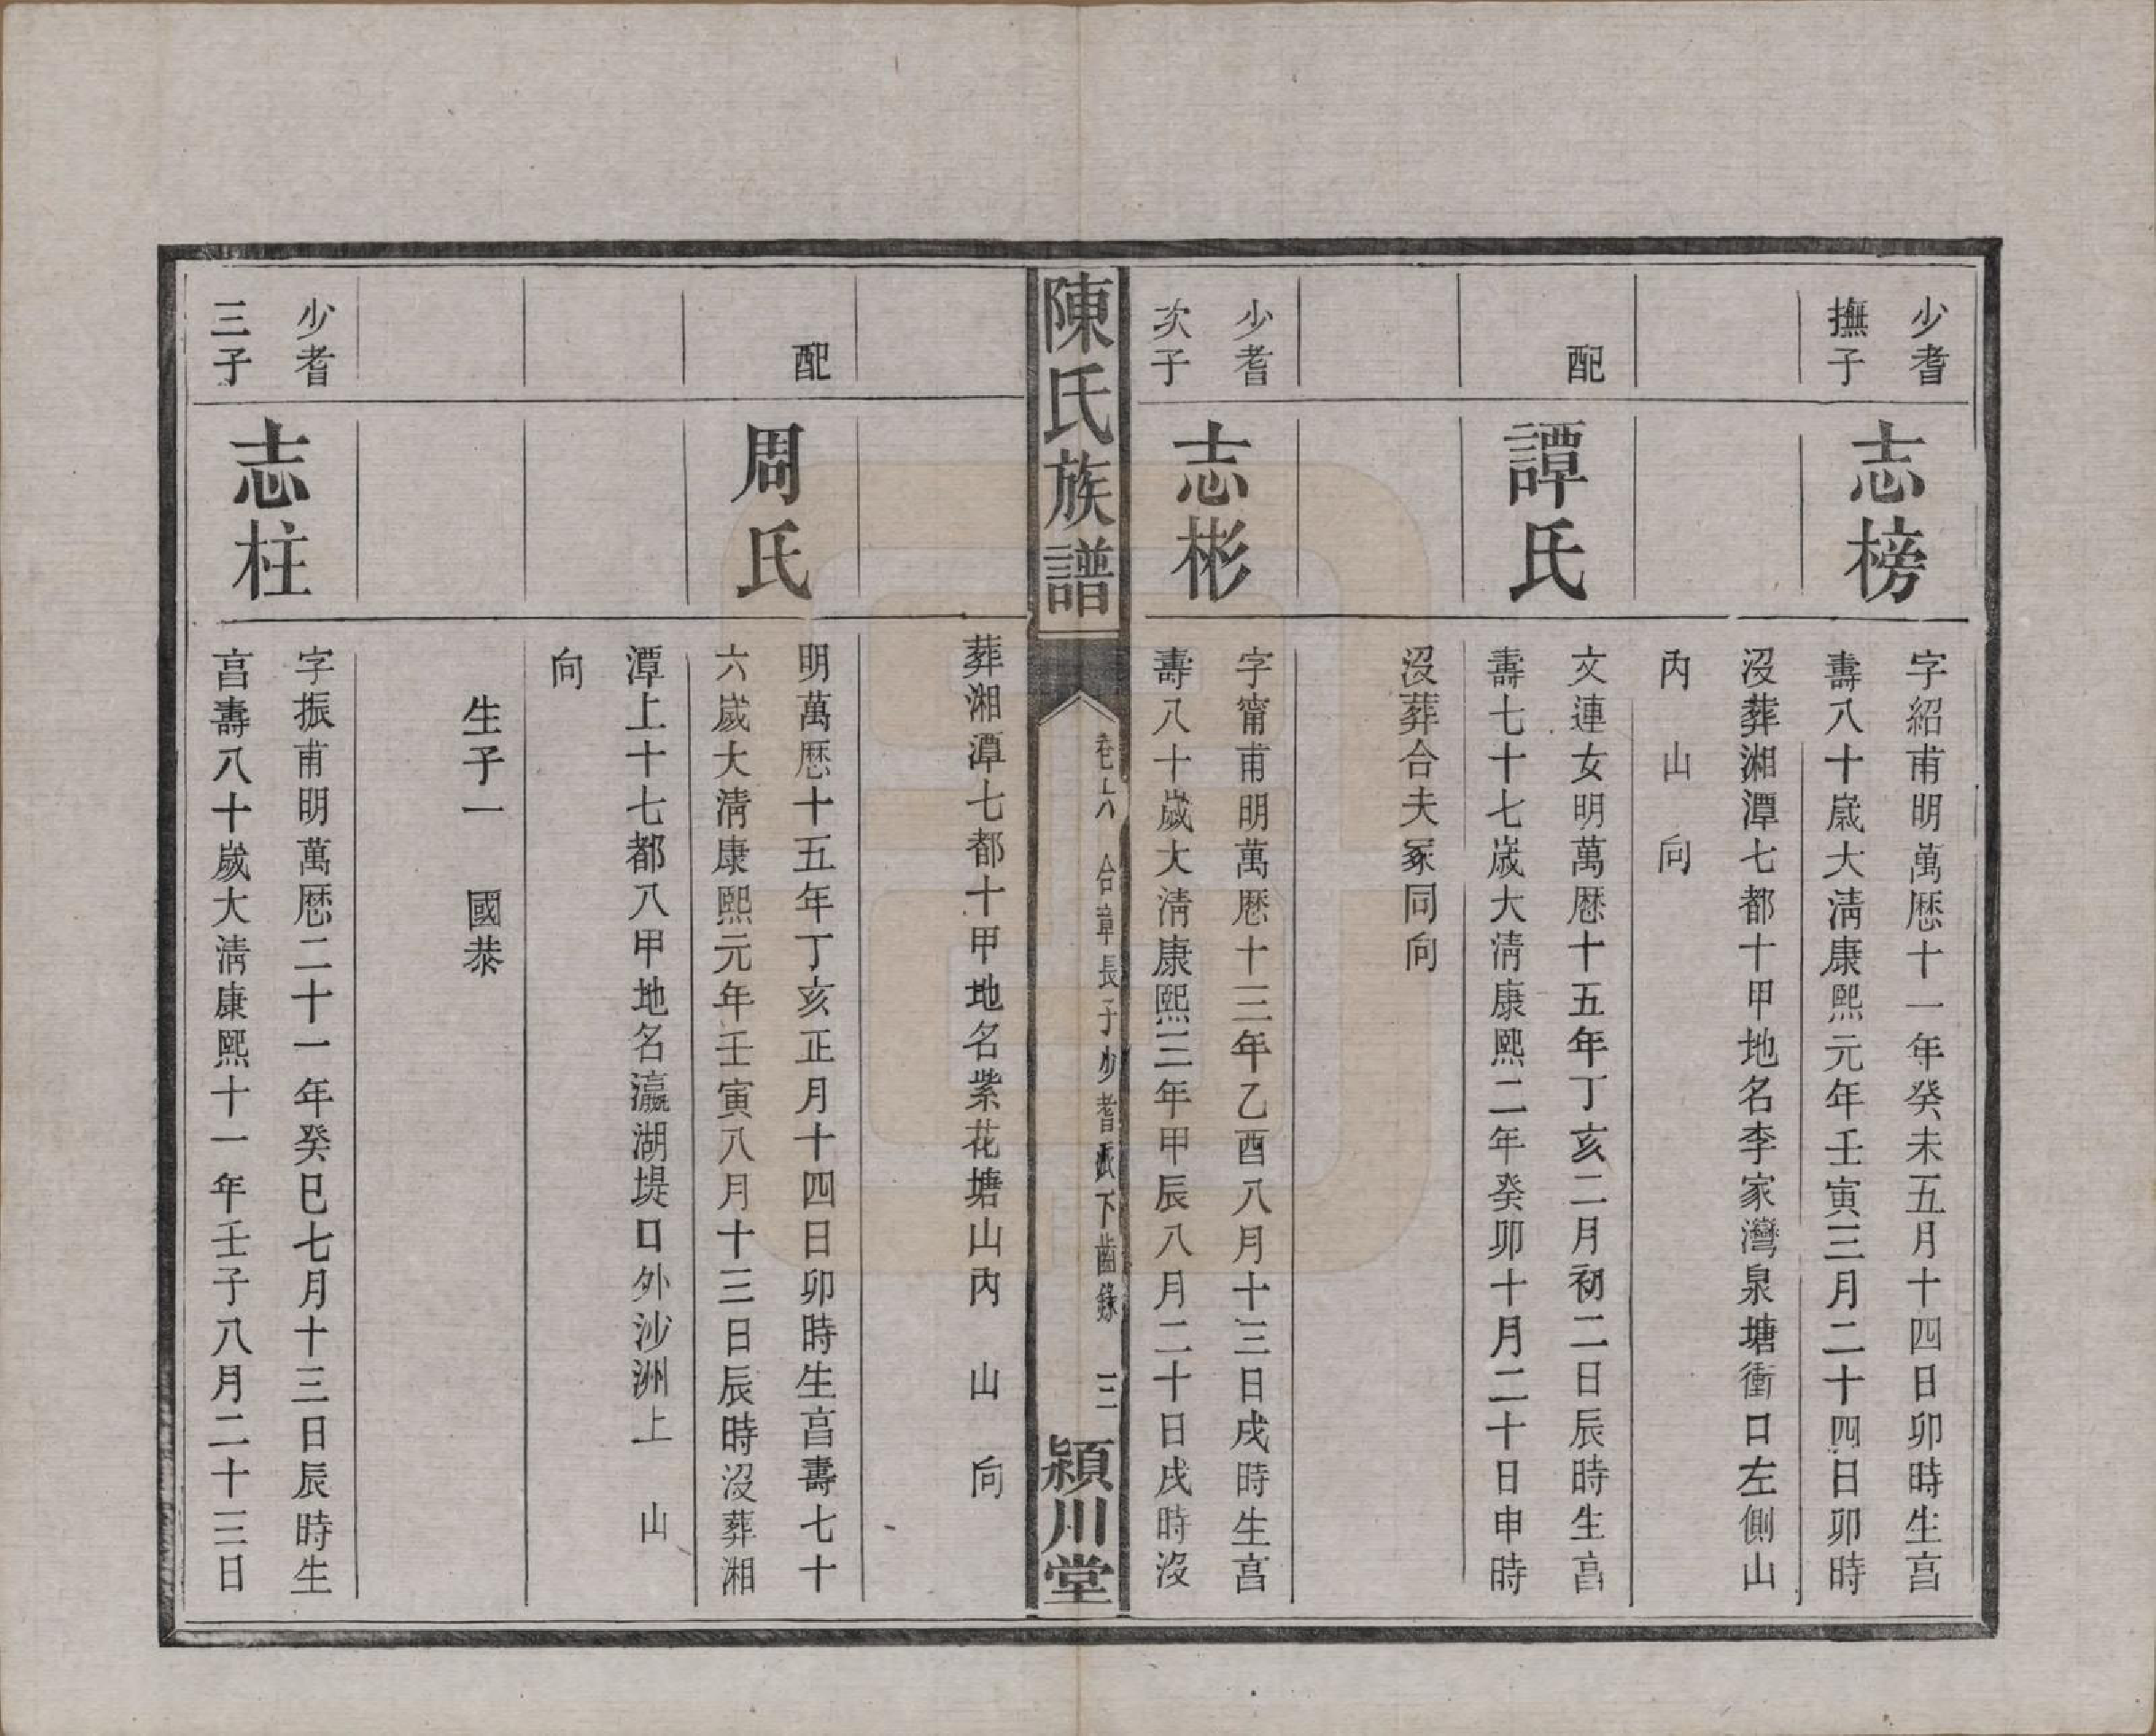 少耆
撫子
志榜
字紹甫明萬厯十一年癸未五月十四日卯時生亯
壽八十歲大淸康熙元年壬寅三月二十四日卯時
沒葬湘潭七都十甲地名李家灣泉塘衝口左側山
内　山　向
配
譚氏
文連女明萬厯十五年丁亥二月初二日辰時生亯
壽七十七歲大淸康熙二年癸卯十月二十日申時
沒葬合夫冢同向
少耆
次子
志彬
字甯甫明萬厯十三年乙酉八月十三日戌時生亯
壽八十歲大淸康熙三年甲辰八月二十日戌時沒
陳氏族譜
卷六　合章長子少耆派下齒錄　三
潁川堂
葬湘潭七都十甲地名紫花塘山内　山　向
配
周氏
明萬厯十五年丁亥正月十四日卯時生亯壽七十
六歲大淸康熙元年壬寅八月十三日辰時沒葬湘
潭上十七都八甲地名瀛湖堤口外沙洲上　山
向
生子一　國恭
少耆
三子
志柱
字振甫明萬厯二十一年癸巳七月十三日辰時生
亯壽八十歲大淸康熙十一年壬子八月二十三日